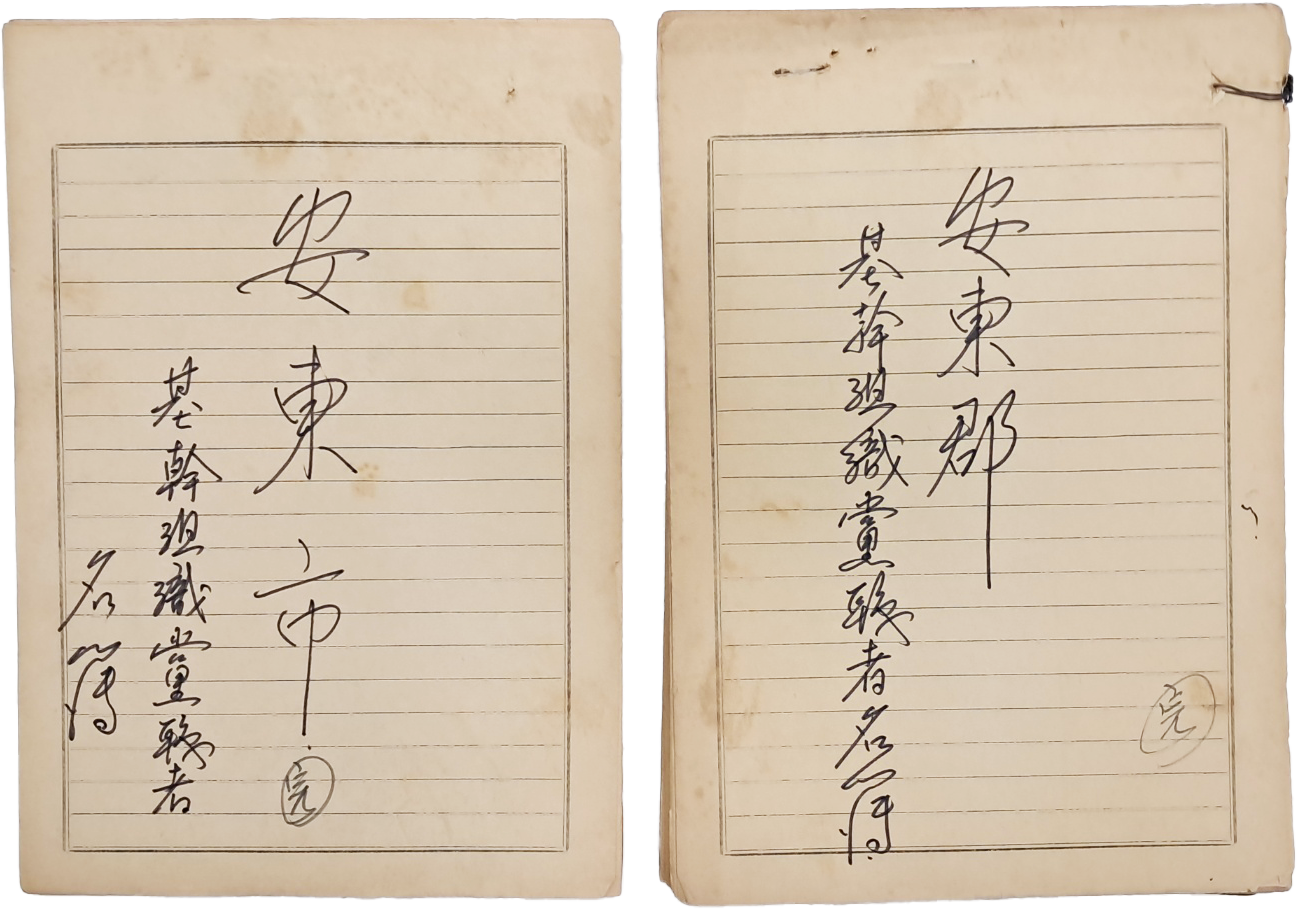 安東市
基幹組職黨職者
名簿
完
安東郡
基幹組織黨職者名簿
完